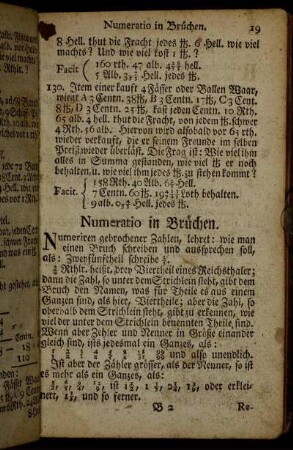 Numeratio in Brüchen. 19
8 Hell. thut die Fracht jedes ℔. 6 Hell. wie viel
machts? Und wie viel kost 1 ℔.?
Facit 160 rth. 47 alb. Hell.
5 Alb. Hell. jedes ℔.
130. Item einer kauft 4 Fässer oder Ballen Waar,
wiegt A 3 Centn. 38 ℔, B 3 Centn. 17 ℔, C 3 Cent.
8 ℔, D 3 Centn. 25 ℔, kost jeden Centn. 10 Rth.
65 alb. 4 hell. thut die Fracht, von jedem ℔. schwer
4 Rth. 56 alb. Hiervon wird alsobald vor 63 rth.
wieder verkauft, die er seinem Freunde im selben
Preiß wieder überläst. Die Frag ist: Wie viel ihm
alles in Summa gestanden, wie viel ℔ er noch
behalten, u. wie viel ihm jedes ℔ zu stehen komt?
158 Rth. 40 Alb. Hell.
Facit. 7 Centn. 60 ℔. Loth behalten.
9 alb. Hell. jedes ℔.
Numeratio in Brüchen.
Numeriren gebrochener Zahlen, lehret: wie man
einen Bruch schreiben und aussprechen soll,
als: Zwey fünftheil schreibe ⅖.
¾ Rthlr. heißt, drey Viertheil eines Reichsthaler;
dann die Zahl, so unter dem Strichlein steht, gibt dem
Bruch den Namen, was für Theile es aus einem
Ganzen sind, als hier, Viertheile; aber die Zahl, so
oberhalb dem Strichlein steht, gibt zu erkennen, wie
viel der unter dem Strichlein benannten Theile sind.
Wenn aber Zehler und Nenner in Grösse einander
gleich sind, ists jedesmal ein Ganzes, als:
und also unendlich.
Ist aber der Zähler grösser, als der Nenner, so ist
es mehr als ein Ganzes, als:
ist oder erklei-
nert, und so ferner.
B 2 Re-